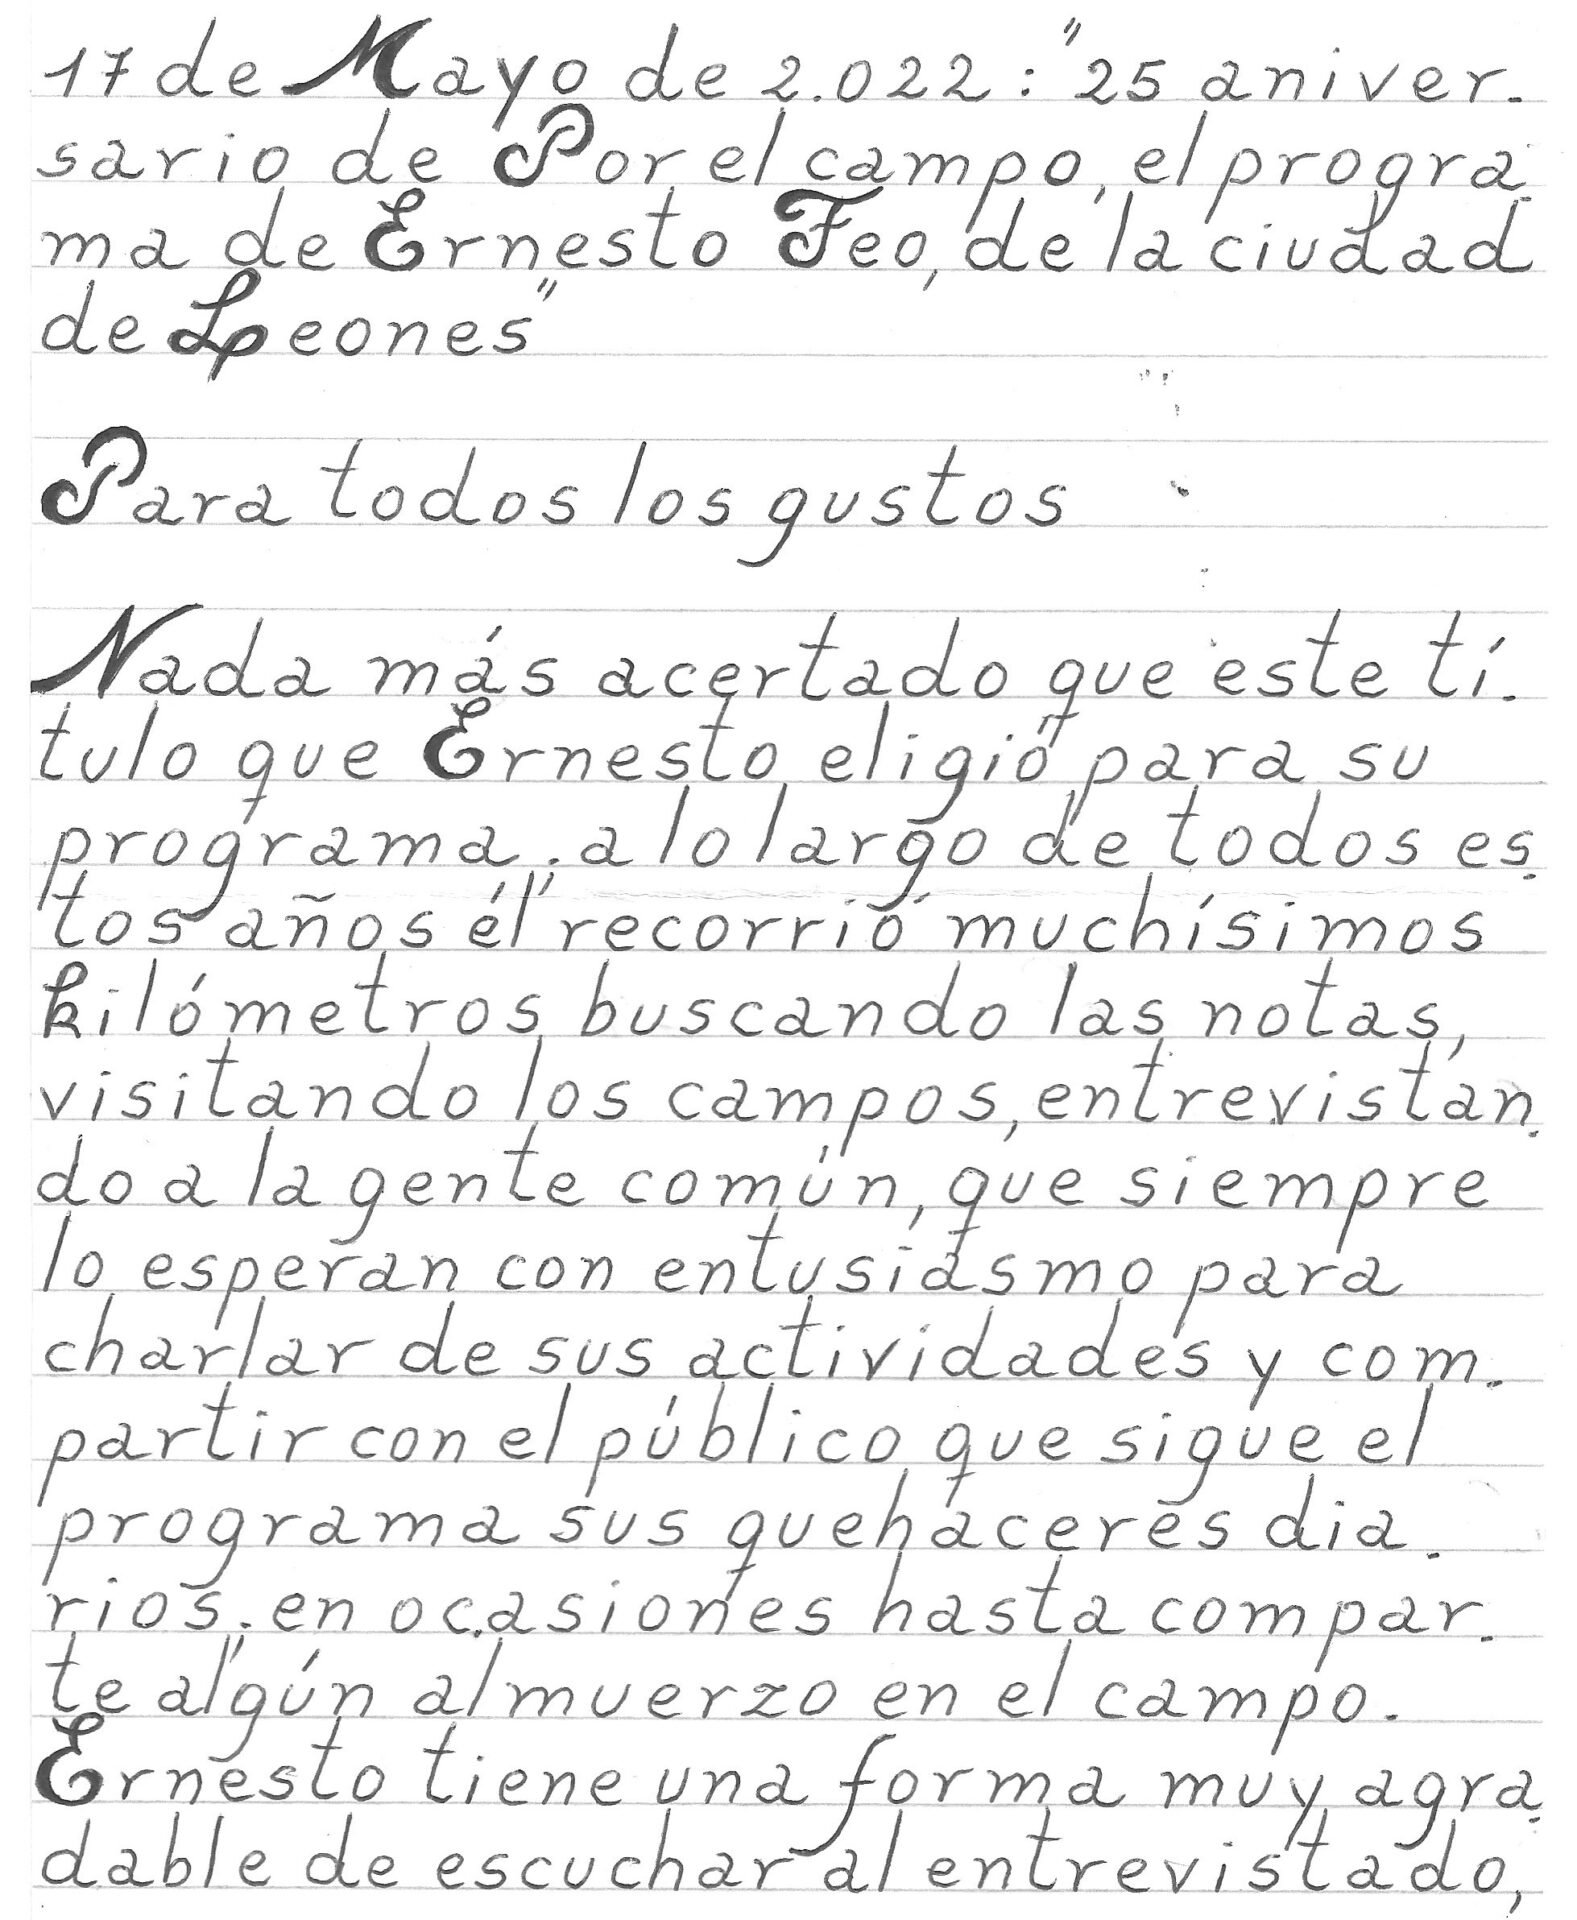 17 de Mayo de 2.022: "25 aniver-
sario de Por el campo, el progra-
ma de Ernesto Feo, de la ciudad
de Leones"
Para todos los gustos
Nada más acertado que este tí-
tulo que Ernesto eligió para su
programa; a lo largo de todos es-
tos años él recorrió muchísimos
kilómetros buscando las notas,
visitando los campos, entrevistan-
do a la gente común, que siempre
lo esperan con entusiasmo para
charlar de sus actividades y com-
partir con el público que sigue el
programa sus quehaceres dia-
rios; en ocasiones hasta compar-
te algún almuerzo en el campo.
Ernesto tiene una forma muy agra-
dable de escuchar al entrevistado,